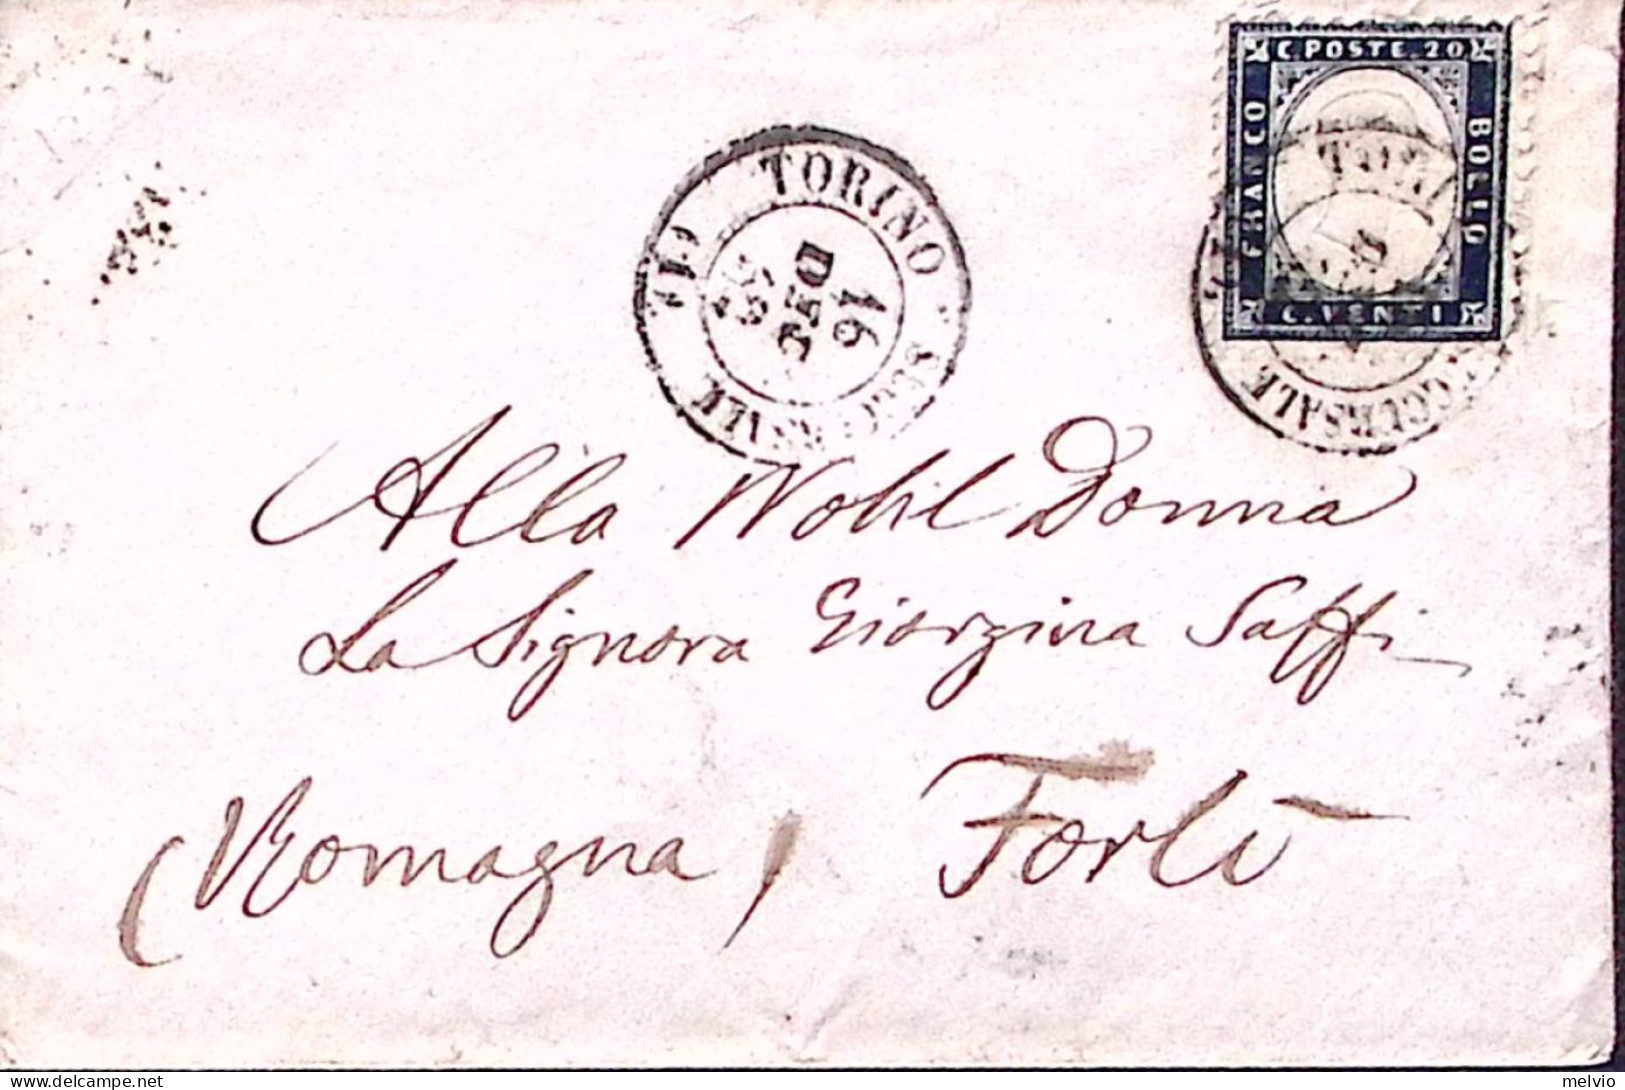 C. POSTE. 20
FRANCO
BOLLO
C. VENTI
TORI
SUCCURSALE
TORINO
SUCCURSALE
16
DEC
Alla Nobil Donna
La Signora Giorgina Saffi
(Romagna) Forlì
www.delcampe.net
melvio